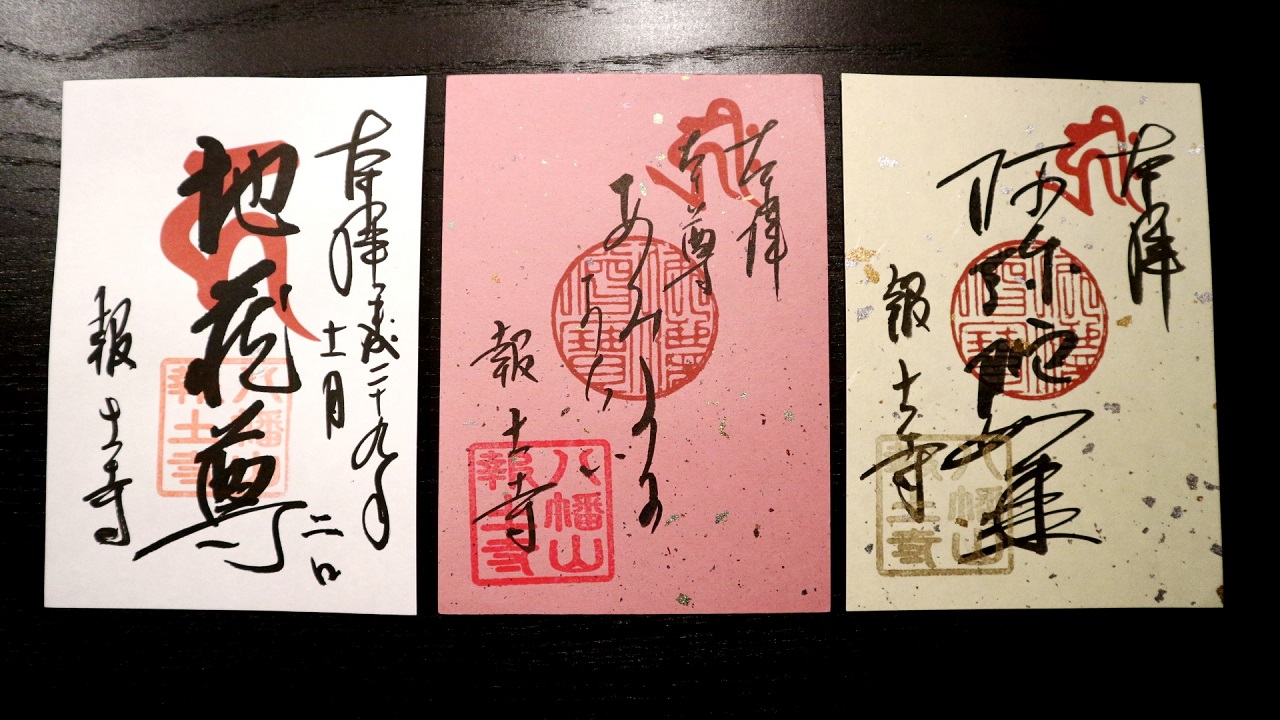 奉拝 平成二十九年
十一月 二日
地蔵尊
報土寺
八幡山
報土寺
奉拝
本尊
報土寺
八幡山
報土寺
奉拝
阿弥陀如来
報土寺
八幡山
報土寺